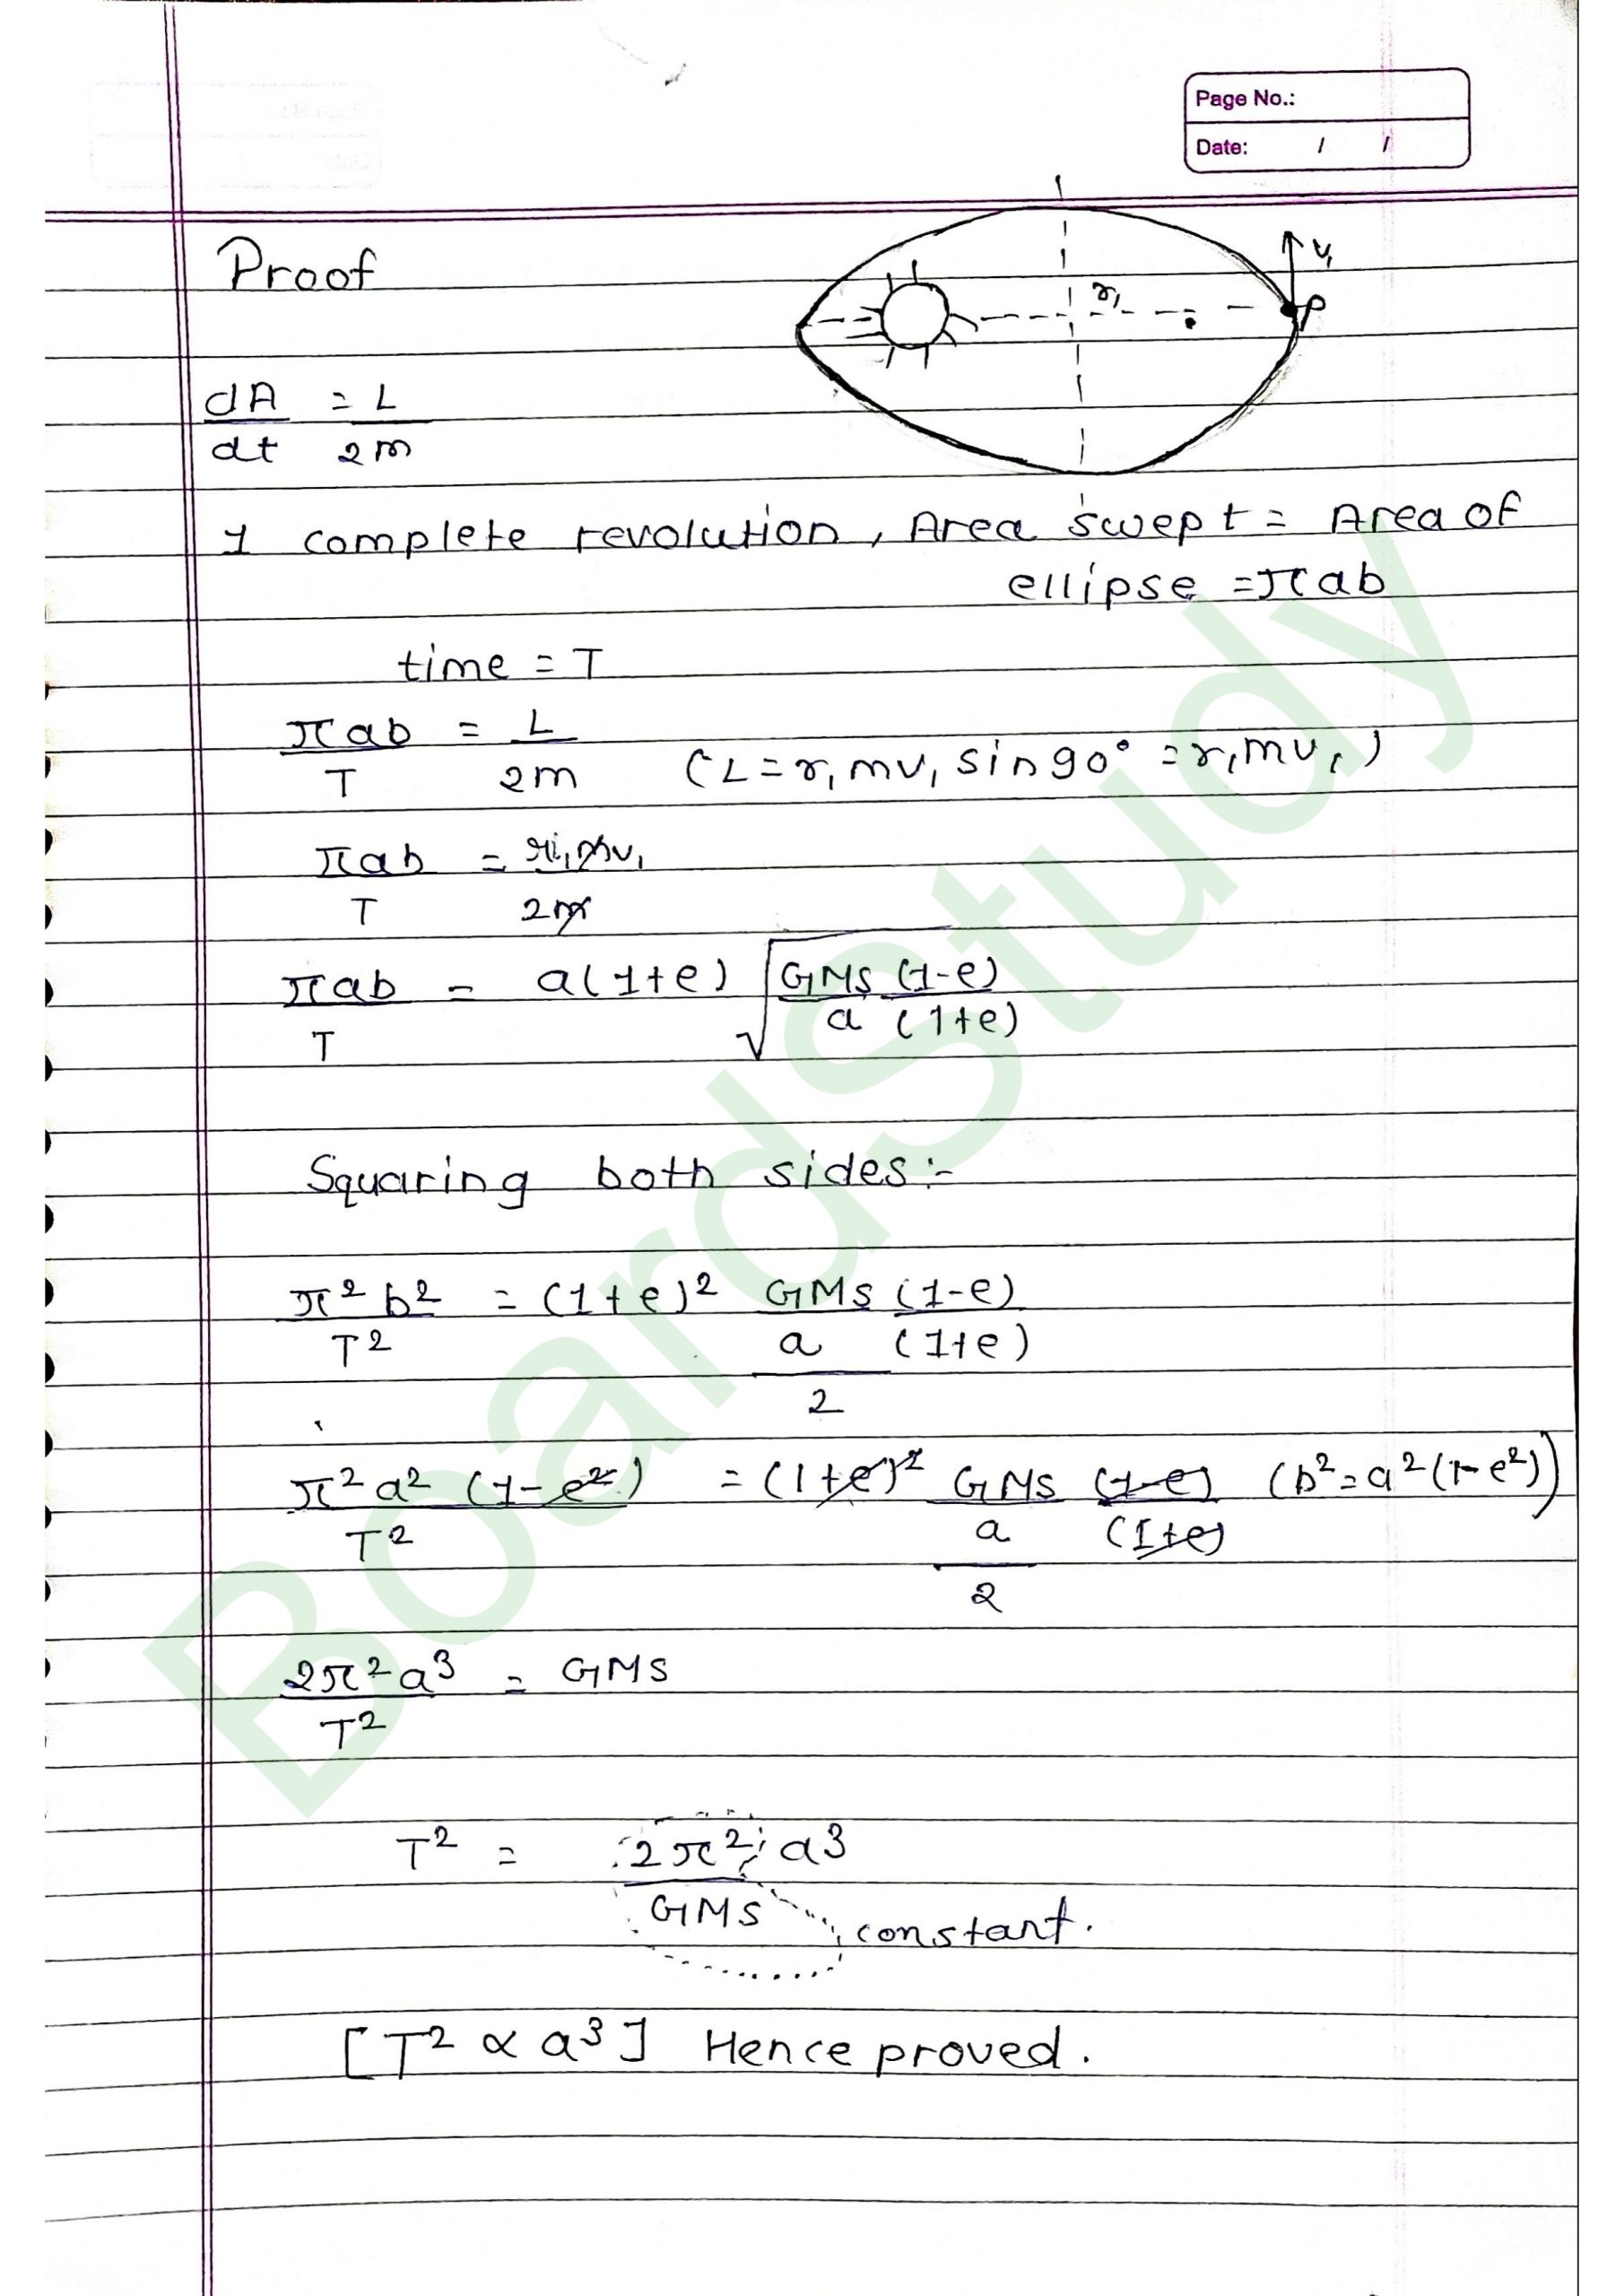 Page No.:
Date: / /
Proof
v₁
r₁
P
dA/dt = L/2m
1 complete revolution, Area swept = Area of
ellipse = πab
time = T
πab/T = L/2m (L = r₁mv₁ sin90° = r₁mv₁)
πab/T = r₁mv₁/2m
πab/T = a(1+e) √(GMs (1-e)/a (1+e))
Squaring both sides:-
π²b²/T² = (1+e)² GMs (1-e)/a (1+e)/2
π²a²(1-e²)/T² = (1+e)² GMs (1-e)/a (1+e)/2 (b²=a²(1-e²))
2π²a³/T² = GMs
T² = 2π²/GMs a³
constant.
[T² ∝ a³] Hence proved.
BoardStudy